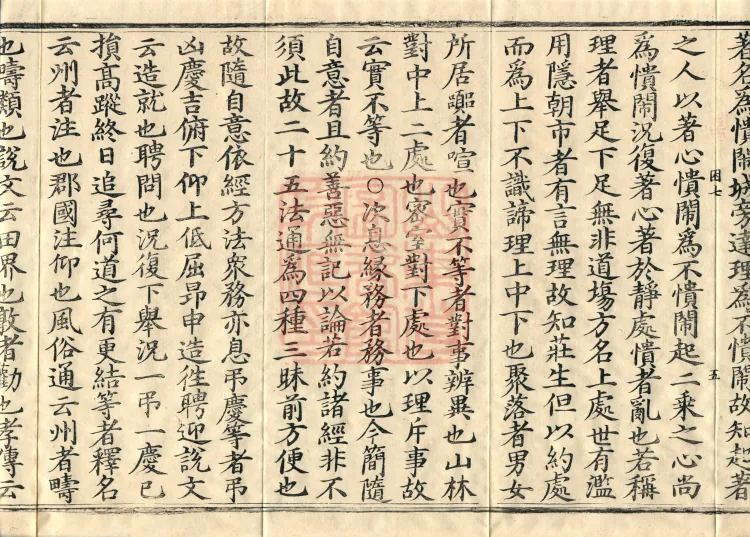 著名為憒閙城旁達理為不憒閙故知起著
之人以著心憒閙為不憒閙起二乘之心尚
為憒閙況復著心著於靜處憒者亂也若稱
理者舉足下足無非道場方名上處世有濫
用隱朝市者有言無理故知莊生但以約處
而為上下不識諦理上中下也聚落者男女
困七
五
所居踞者喧也實不等者對事辨異也山林
對中上二處也密室對下處也以理斥事故
云實不等也○次息緣務者務事也今簡隨
自意者且約善惡無記以論若約諸經非不
須此故二十五法通為四種三昧前方便也
故隨自意依經方法衆務亦息弔慶等者弔
凶慶吉俯下仰上低屈昂申造徃聘迎說文
云造就也聘問也況復下舉況一弔一慶已
損高蹤終日追尋何道之有更結等者釋名
云州者注也郡國注仰也風俗通云州者疇
也疇類也說文云田界也敦者勸也孝傳云